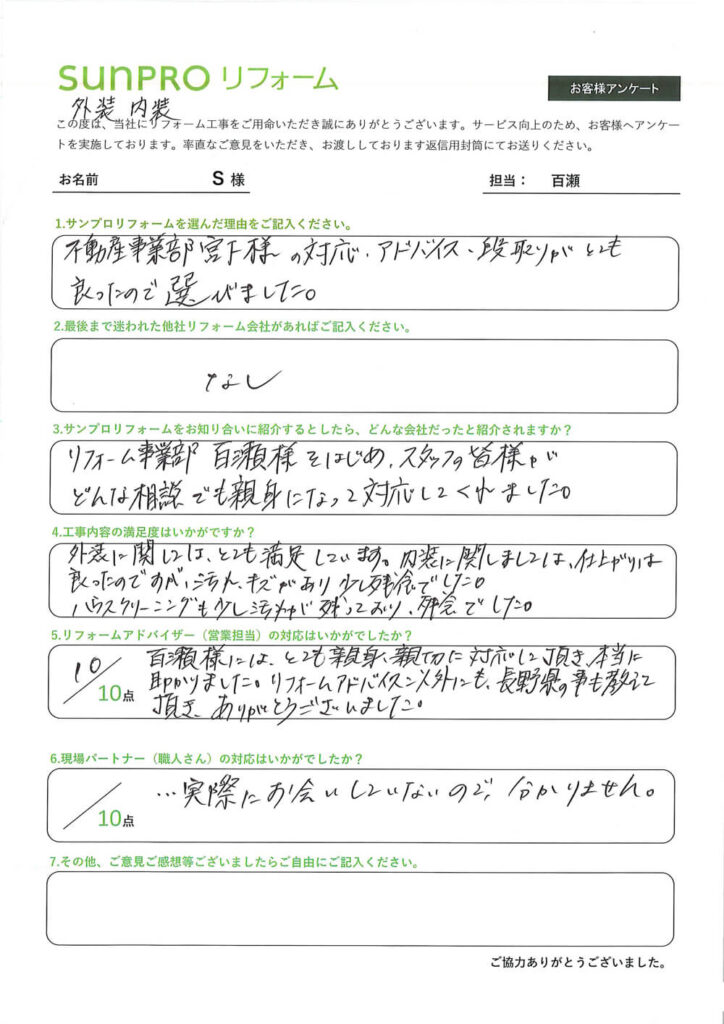 SUNPRO リフォーム
お客様アンケート
外装 内装
この度は、当社にリフォーム工事をご用命いただき誠にありがとうございます。サービス向上のため、お客様へアンケー
トを実施しております。率直なご意見をいただき、お渡ししております返信用封筒にてお送りください。
お名前 S 様 担当： 百瀬
1.サンプロリフォームを選んだ理由をご記入ください。
不動産事業部 宮下様 の対応・アドバイス・段取りがとても
良ったので 選びました。
2.最後まで迷われた他社リフォーム会社があればご記入ください。
なし
3.サンプロリフォームをお知り合いに紹介するとしたら、どんな会社だったと紹介されますか？
リフォーム事業部 百瀬様をはじめ、スタッフの皆様が
どんな相談でも親身になって対応してくれました。
4.工事内容の満足度はいかがですか？
外装に関しては、とても満足しています。内装に関しましては、仕上がりは
良ったのですが、汚れ、キズがあり 少し残念でした。
ハウスクリーニングも少し汚れが残っており、残念でした。
5.リフォームアドバイザー（営業担当）の対応はいかがでしたか？
10/10点
百瀬様には、とても親身、親切に対応して頂き、本当に
助かりました。リフォームアドバイス以外にも、長野県の事も教えて
頂き、ありがとうございました。
6.現場パートナー（職人さん）の対応はいかがでしたか？
/10点
…実際にお会いしていないので、分かりません。
7.その他、ご意見ご感想等ございましたらご自由にご記入ください。
ご協力ありがとうございました。